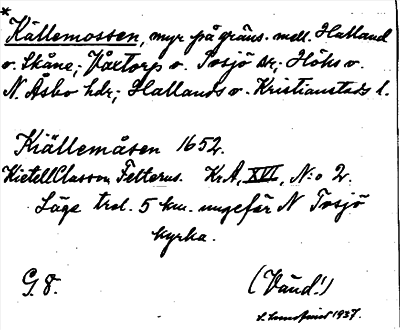 *
Källemossen, myr på gräns. mell. Halland
o. Skåne; Våxtorp o. Tosjö sr; Höks o.
N. Åsbo hdr; Hallands o. Kristianstads l.
Kiällemåsen 1652.
Kietell Classon Felterus. KrA, XVII, N:o 2.
Läge trol. 5 km. ungefär N Tosjö
kyrka.
G. 8.
(Vänd!)
1937.